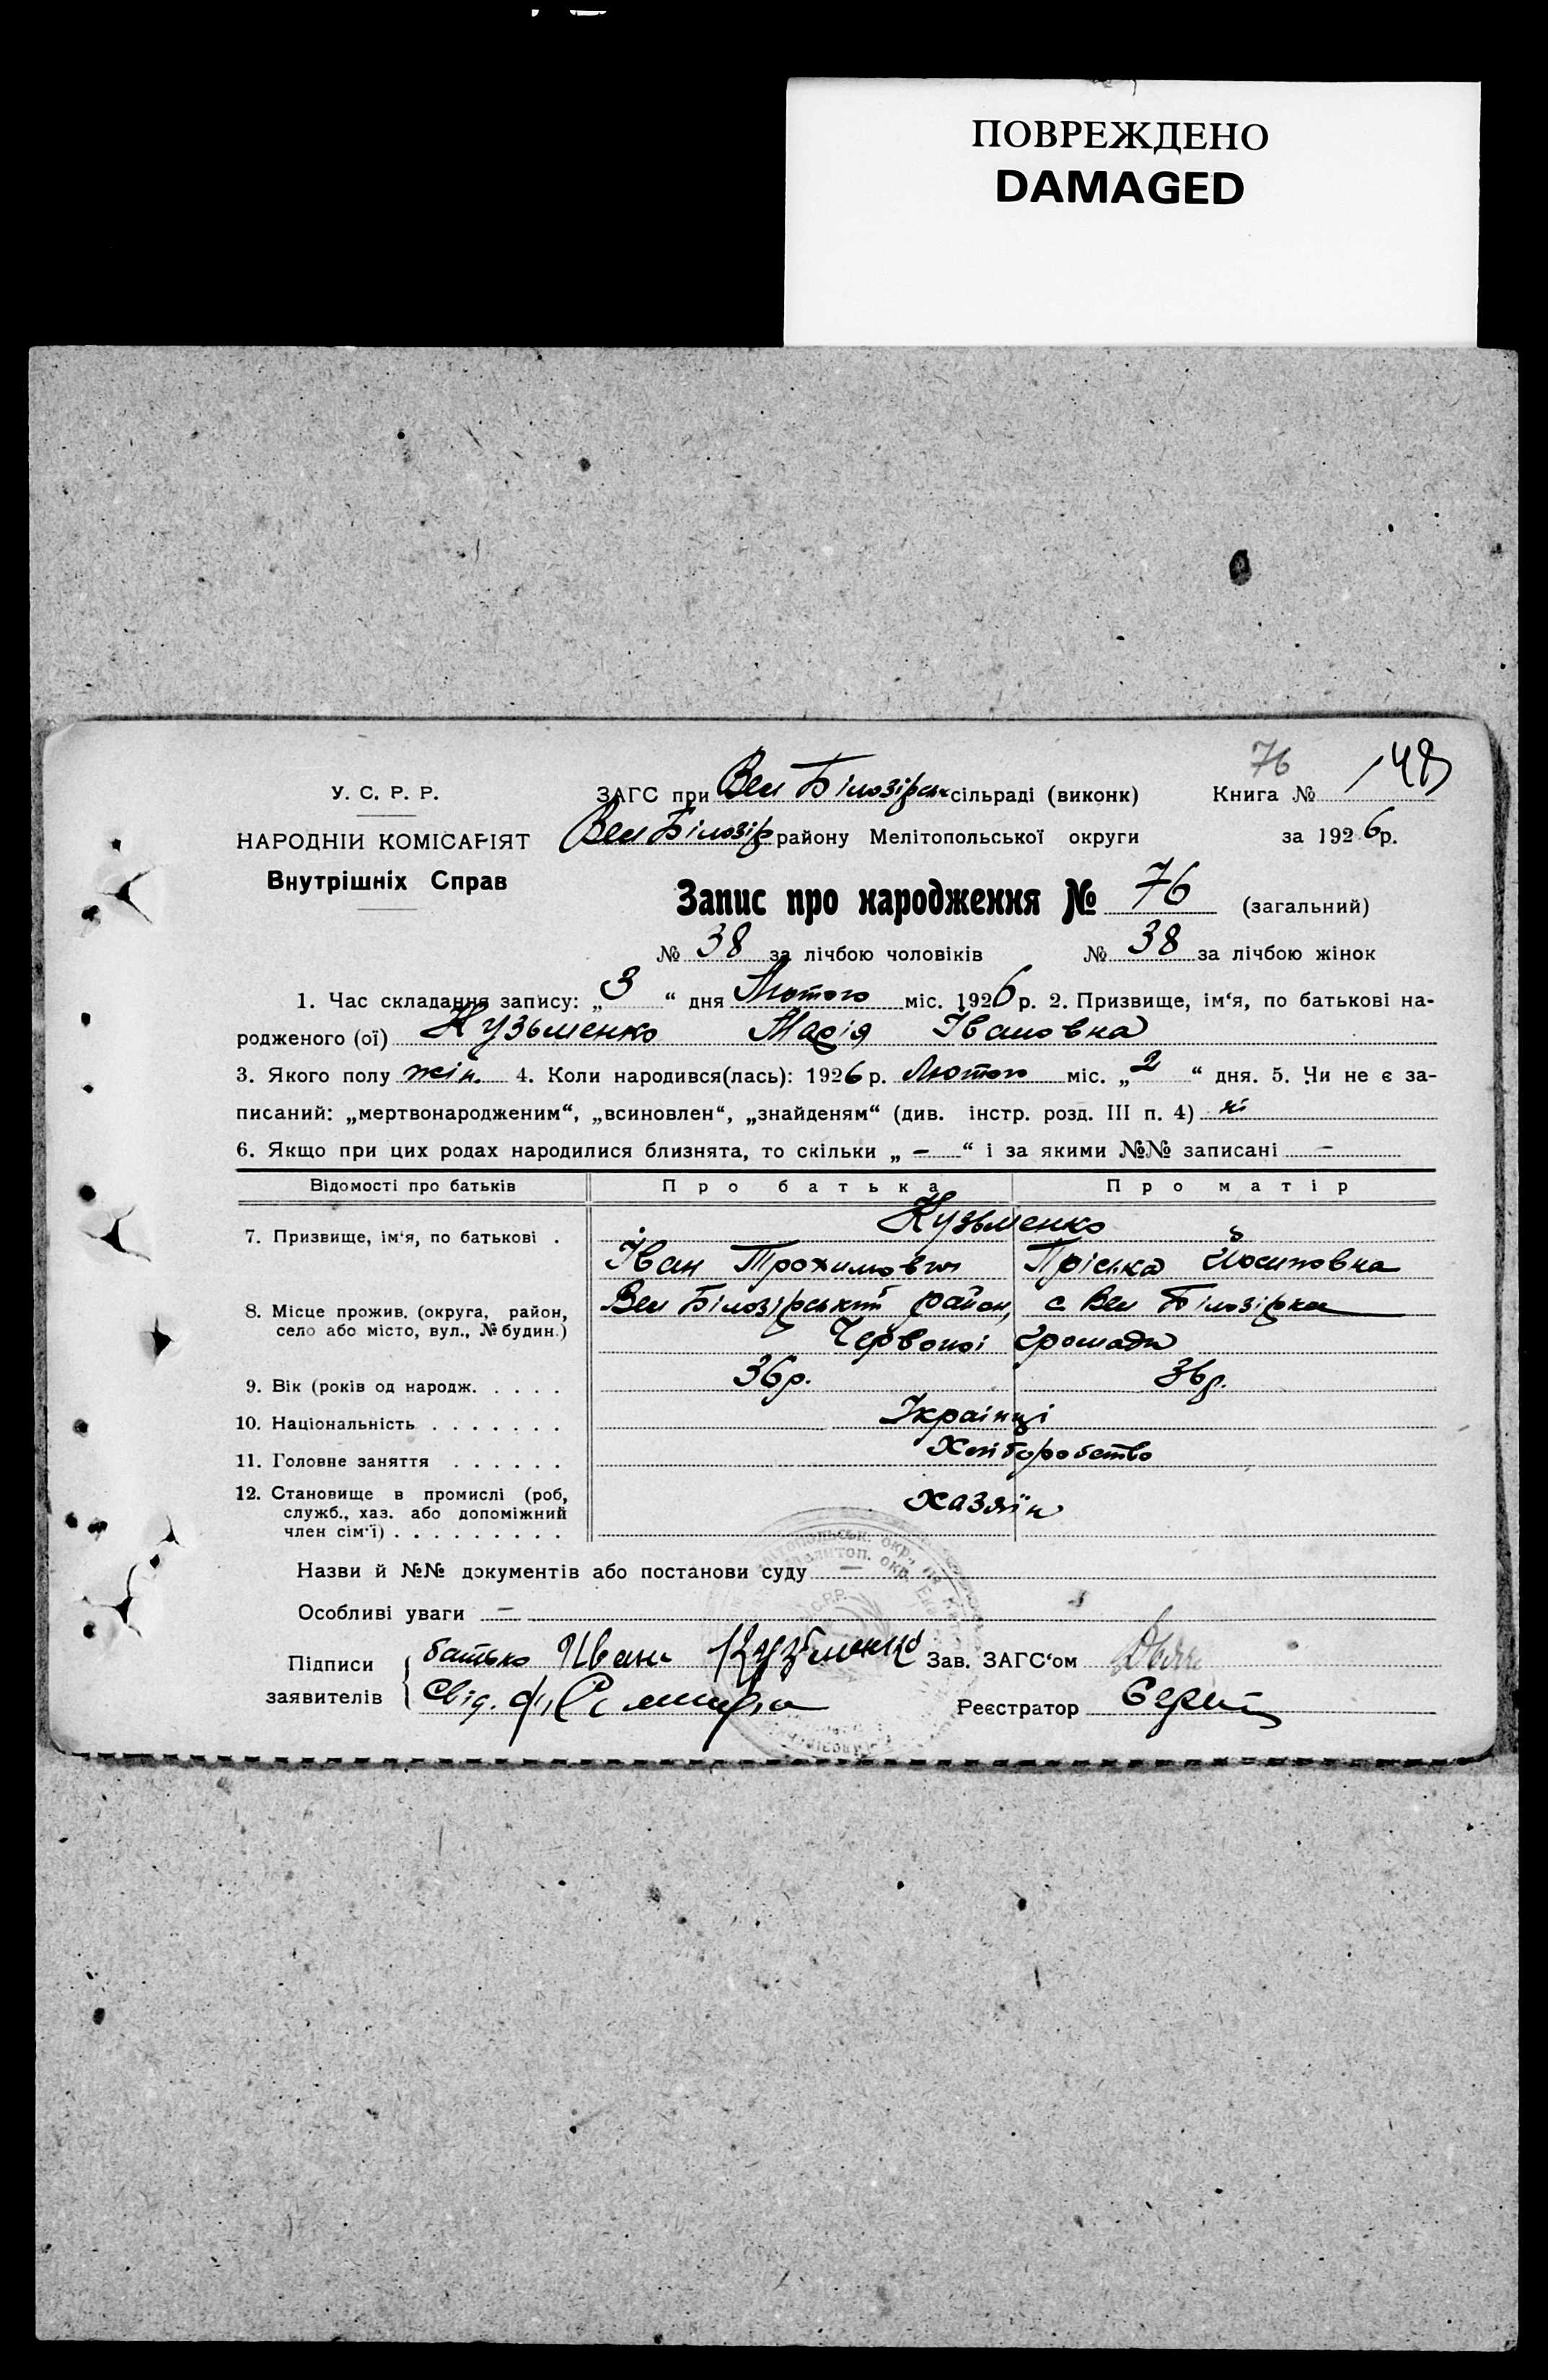 ПОВРЕЖДЕНО
DAMAGED
76
148
У. С. Р. Р. ЗАГС при Вел Білозірськ сільраді (виконк) Книга №
НАРОДНІЙ КОМІСАРІЯТ Вел Білозір району Мелітопольської округи за 1926р.
Внутрішніх Справ
Запис про народження № 76 (загальний)
№ 38 за лічбою чоловіків № 38 за лічбою жінок
1. Час складання запису: „3“ дня Лютого міс. 1926 р. 2. Призвище, ім‘я, по батькові на-
родженого (ої) Кузьменко Марія Івановна
3. Якого полу жін. 4. Коли народився(лась): 1926 р. Лютого міс. „2“ дня. 5. Чи не є за-
писаний: „мертвонародженим“, „всиновлен“, „знайденям“ (див. інстр. розд. III п. 4) ні
6. Якщо при цих родах народилися близнята, то скільки „ – “ і за якими №№ записані –
Відомості про батьків Про батька Про матір
7. Призвище, ім‘я, по батькові . Кузьменко
Іван Трохимович Пріська Йосиповна
8. Місце прожив. (округа, район, Вел Білозірський район, с Вел Білозірка
село або місто, вул., № будин.) Червоної громади
9. Вік (років од народж. . . . . 36р. 36р.
10. Національність . . . . . . . Українці
11. Головне заняття . . . . . . Хліборобство
12. Становище в промислі (роб, Хазяїн
служб., хаз. або допоміжний
член сім‘ї) . . . . . . . . .
Назви й №№ документів або постанови суду –
Особливі уваги –
Підписи батько Иван Кузьменко Зав. ЗАГС‘ом
заявителів Свід. Реєстратор